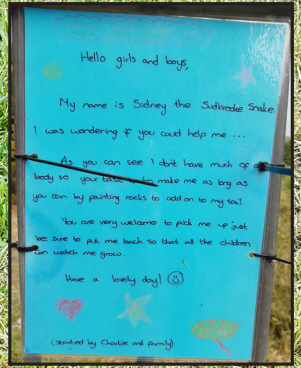 Hello girls and boys,
My name is Sidney the Sudbrooke Snake.
I was wondering if you could help me ...
As you can see I don't have much of
body so your task is to make me as long as
you can by painting rocks to add on to my tail.
You are very welcome to pick me up just
be sure to put me back so that all the children
can watch me grow.
Have a lovely day!
(started by Charlie and family)